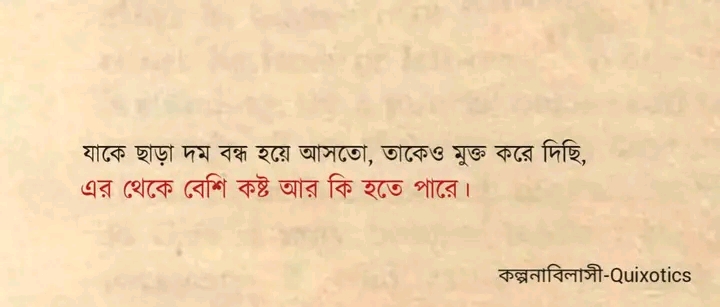 যাকে ছাড়া দম বন্ধ হয়ে আসতো, তাকেও মুক্ত করে দিছি,
এর থেকে বেশি কষ্ট আর কি হতে পারে।
কল্পনাবিলাসী-Quixotics